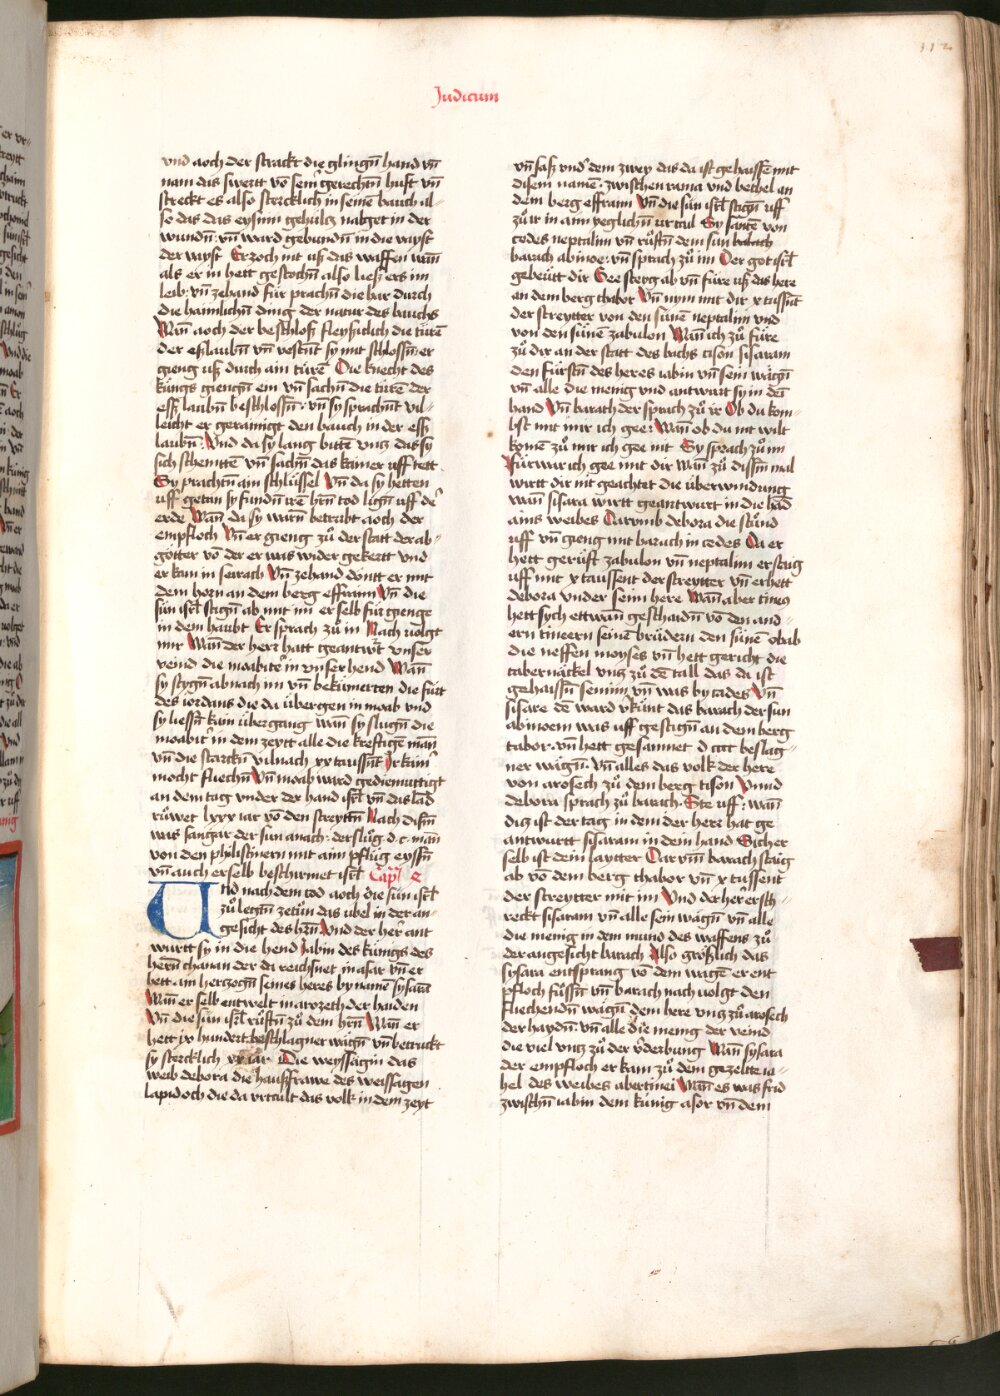 112
Judicum
vnd aoch der strackt die glingñ hand vñ
nam das swertt võ sem̃ gerechtñ huft vñ
streckt es also stercklich in seinẽ bauch al-
so das das eysinn gehultz nahget in der
wundñ. vñ ward gebundñ in die wayst
der wyst Er zoch nit uß das waffen wañ
als er in hett gestochñ also ließ ers im
leib. vñ zehand für prachñ die bar durch
die haimlichñ ding der natur des bauchs
Wañ aoch der beschloß fleyssiclich die türẽ
der eßlaubñ vñ vestñt sy mit schlossñ er
gieng uß durch ain türẽ Die knecht des
küngs giengñ ein vñ sachñ die türẽ der
eßlaubñ beschlossñ. vñ sy sprachñt vil-
leicht er gerainigt den bauch in der eß
laubñ. Vnd da sy lang bittẽ vntz das sy
sich schemttẽ vñ sachñ das kainer uff tett
Sy prachtñ ain schlüssel Vñ da sy hetten
uff getan sy fundñ irẽ hrñ tod ligñ uff dẽ
erde Wañ da sy warñ betrübt aoch der
empfloch Vñ er gieng zů der statt der ab-
götter võ der er was wider gekertt vnd
er kam in seirach Vñ zehand dontt er mit
dem horn an dem berg effraim Vñ die
sün isrl stigñ ab mit im er selb für gienge
in dem haubt Er sprach zů in Nach volgt
mir Wañ der herr hatt geantwrt vnser
veind die moabitẽ in vnser hend Wañ
sy stygñ ab nach im vñ bekümerten die fürt
des iordans die da übergen in moab vnd
sy liessñt kain übergang wañ sy slugñ die
moabit in dem zeytt alle die kreftigẽ mañ
vñ die starckñ vilnach xx taussñt Ir kain
mocht fliechñ Vñ moab ward gediemuttigt
an dem tag vnder der hand isrl vñ das lãd
růwet lxxx iar võ den streyttñ Nach disñ
was sangar der sun anach. der slůg .d.c. mañ
von den philistinern mit aim pflüg eysñ
vñ auch er selb beschirmet isrl Capl e
Vnd nach dem tod aoch die sün isrl
zů legtñ zetün das übel in der an-
gesicht des hrñ Vnd der her ant
wurtt sy in die hend Jabin des küngs des
herñ chanan der da reichsnet in asar vñ er
hett am hertzogñ seines heres by namẽ sysara
Wañ er selb entwelt in arozeth der haiden
Vñ die sün isrl růftñ zů dem hrñ Wañ er
hett ix hundert beschlagner wägñ vñ betruckt
sy stercklich xx iar Die weyssagin das
weib debora die haussfrawe des weissagen
lapidoch die da vrteilt das volk in dem zeyt
vñ saß vnder dem zwey das da ist gehaissẽ mit
disem namẽ. zwischen rama vnd bethel an
dem berg effraim Vñ die sün isrl stigñ uff
zů ir in ain yeglichñ urtail Sy sante von
cedes neptalim vñ růftñ dem sun
barach abinoe. vñ sprach zů im Der got isrl
gebeütt dir Gee steyg ab vñ füre uß das here
an dem berg thabor Vñ nym mit dir x tussñt
der streytter von den sünẽ neptalim vnd
von den sünẽ zabulon Wañ ich zů füre
zů dir an der statt des bachs cison sisaram
den fürstñ des heres iabin vñ sein wägñ
vñ alle die menig vnd antwurt sy in deĩ
hand Vñ barach der sprach zů ir Ob du kom-
bst mit mir ich gee. Wañ ob du nit wilt
komẽ zů mir ich gee nit Sy sprach zů im
Fürwar ich gee mit dir Wañ zů dissñ mal
wirtt dir nit geachtet die überwindung
wañ sisara wirtt geantwurt in die hãd
ains weibes Darvmb debora die stůnd
uff vñ gieng mit barach in cedes Da er
hett gerüft zabulon vñ neptalim er staig
uff mit x taussent der streytter vñ er hett
debora vnder seim here Wañ aber cineus
hett sych ettwañ geschaidñ võ den and-
ern cineern seinẽ brüdern den sünẽ obab
die neffen moyses vñ hett gericht die
tabernäckel vntz zů dẽ tall das da ist
gehaissñ sennim vñ was by cades Vñ
sisare dẽ ward v̈künt das barach der sun
abinoem was uff gestigñ an dem berg
tabor. vñ hett gesamnet d cccc beslag-
ner wägñ. vñ alles das volk der here
von arosech zů dem berg cison Vnnd
debora sprach zů barach. Ste uff. wañ
ditz ist der tag in dem der herr hat ge
antwurtt sisaram in dein hand Sicher
selb ist dein laytter Darvm̃ barach staig
ab võ dem berg thabor vñ x tussent
der streytter mit im Vnd der her ersch-
reckt sisaram vñ alle sein wägñ vñ alle
die menig in dem mund des waffens zů
der angesicht barach Also größlich das
sysara entsprang võ dem wagẽ er ent
pfloch fůssñ vñ barach nach volgt den
fliechendñ wägñ dem here vntz zů arosech
der haydñ. vñ alle die menig der veind
die viel vntz zů der v̈derbung Wañ sysara
der empfloch er kam zů dem gezeltte ia-
hel des weibes abertinei Wañ es was frid
zwischñ iabin dem künig asor vñ dem